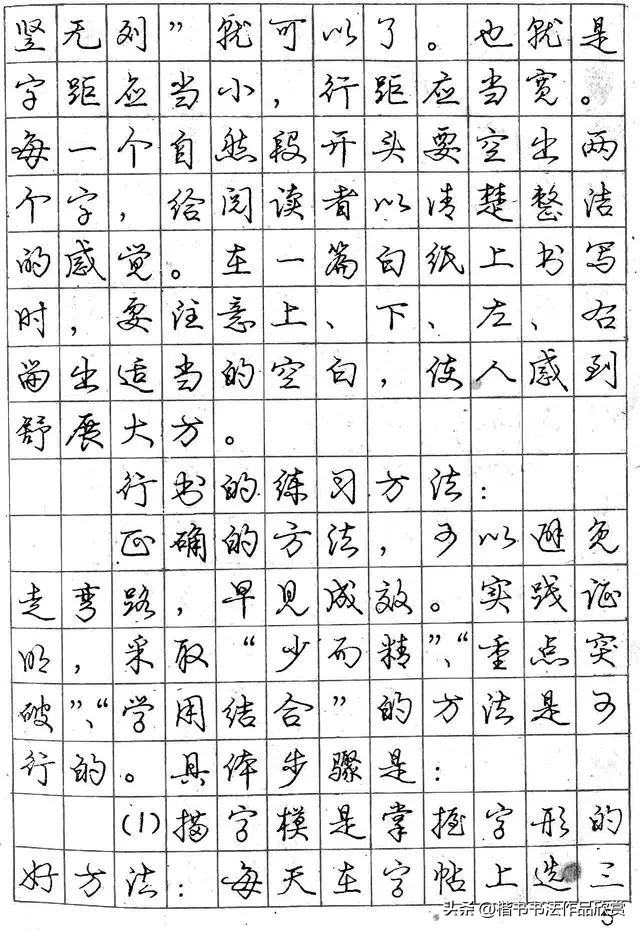 竖无列”就可以了。也就是
字距应当小，行距应当宽。
每一个自然段开头要空出两
个字，给阅读者以清楚整洁
的感觉。在一篇白纸上书写
时，要注意上、下、左、右
留出适当的空白，使人感到
舒展大方。
行书的练习方法：
正确的方法，可以避免
走弯路，早见成效。实践证
明，采取“少而精”、“重点突
破”、“学用结合”的方法是可
行的。具体步骤是：
(1)描字模是掌握字形的
好方法：每天在字帖上选三
5
头条@楷书书法作品欣赏